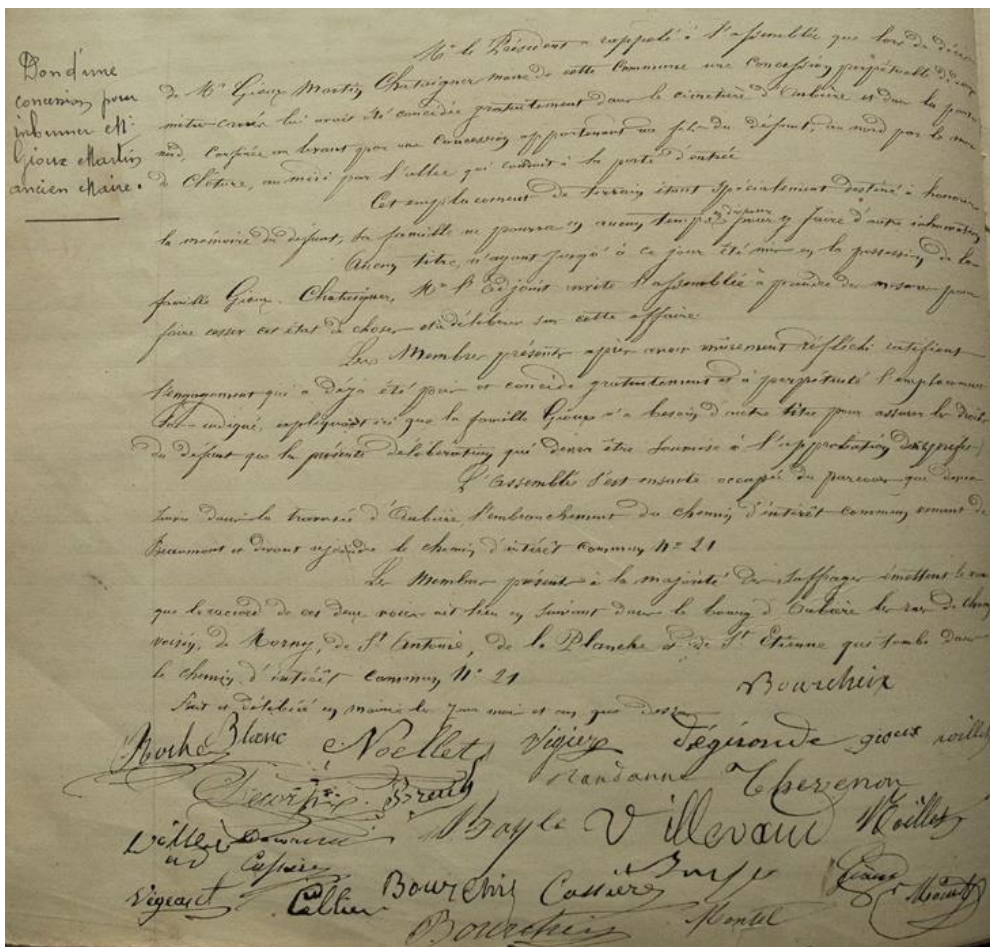 Don d'une
concession pour
inhumer Mr
Gioux Martin
ancien Maire.
Mr le Président a rappelé à l'assemblée que lors du décès
de Mr Gioux Martin Chataigner maire de cette Commune une Concession perpétuelle de
mètres carrés lui avait été concédée gratuitement dans le cimetière d'Aubière et dans la partie
nord, Confinée au levant par une Concession appartenant au fils du défunt, au nord par le mur
de Clôture, au midi par l'allée qui conduit à la porte d'entrée
Cet emplacement de terrain étant Spécialement destiné à honorer
la mémoire du défunt, la famille ne pourra en aucun temps y faire d'autre inhumation
Aucun titre, n'ayant jusqu'à ce jour été mis en la possession de la
famille Gioux-Chataigner, Mr l'Adjoint invite l'assemblée à prendre des mesures pour
faire cesser cet état de choses et à délibérer sur cette affaire.
Les Membres présents après avoir mûrement réfléchi ratifient
l'engagement qui a déjà été pris et concède gratuitement et à perpétuité l'emplacement
indiqué, expliquant ici que la famille Gioux n'a besoin d'autre titre pour assurer les droits
du défunt que la présente délibération qui devra être Soumise à l'approbation
L'Assemblée s'est ensuite occupée du parcours que devra
suivre dans la traversée d'Aubière l'embranchement du chemin d'intérêt commun venant de
Beaumont et devant rejoindre le chemin d'intérêt Commun N° 21
Les Membres présents à la majorité des Suffrages émettent le vœu
que le raccord de ces deux voies ait lieu en suivant dans le bourg d'Aubière les rues de Champ
voisin, de Morny, de St Antoine, de la Planche et de St Etienne que tombe dans
le chemin d'intérêt Commun N° 21
Fait et délibéré en mairie les jour mois et an que dessus
Bourcheix
Roche Blanc Noellet Vigier Dégironde gioux
Breuly Randanne Thevenon
Bayle Villevaud Noillet
Cassière
Vigeart Cellier Bourcheix Cassière
Bourcheix Montel